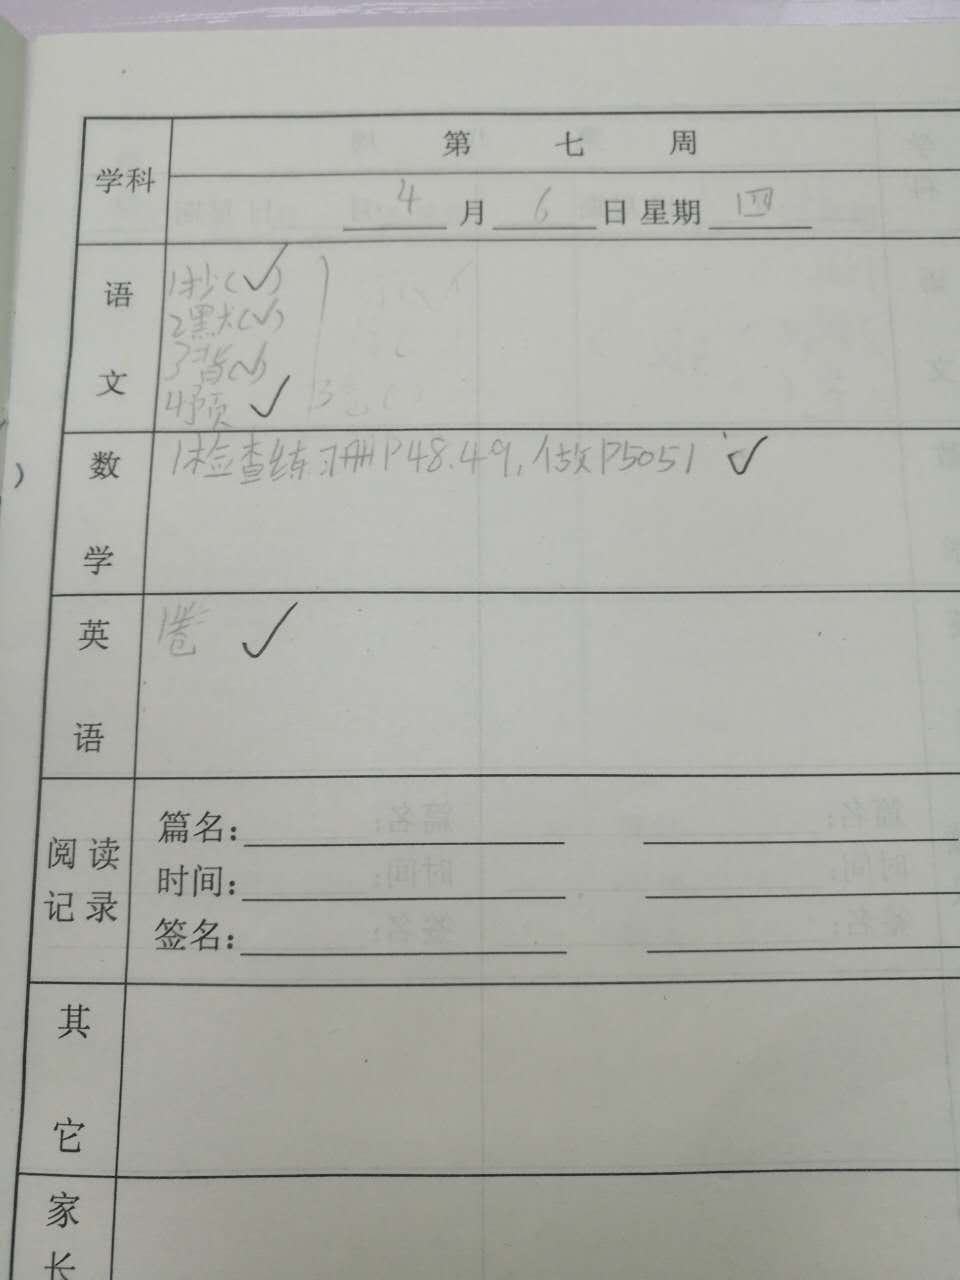 学科
第 七 周
4月6日 星期四
语文
1抄(✓)
2默(✓)
3背(✓)
4预 ✓
数学
1检查练习册P48.49,做P5051 ✓
英语
1卷 ✓
阅读记录
篇名:
时间:
签名:
其它
家长